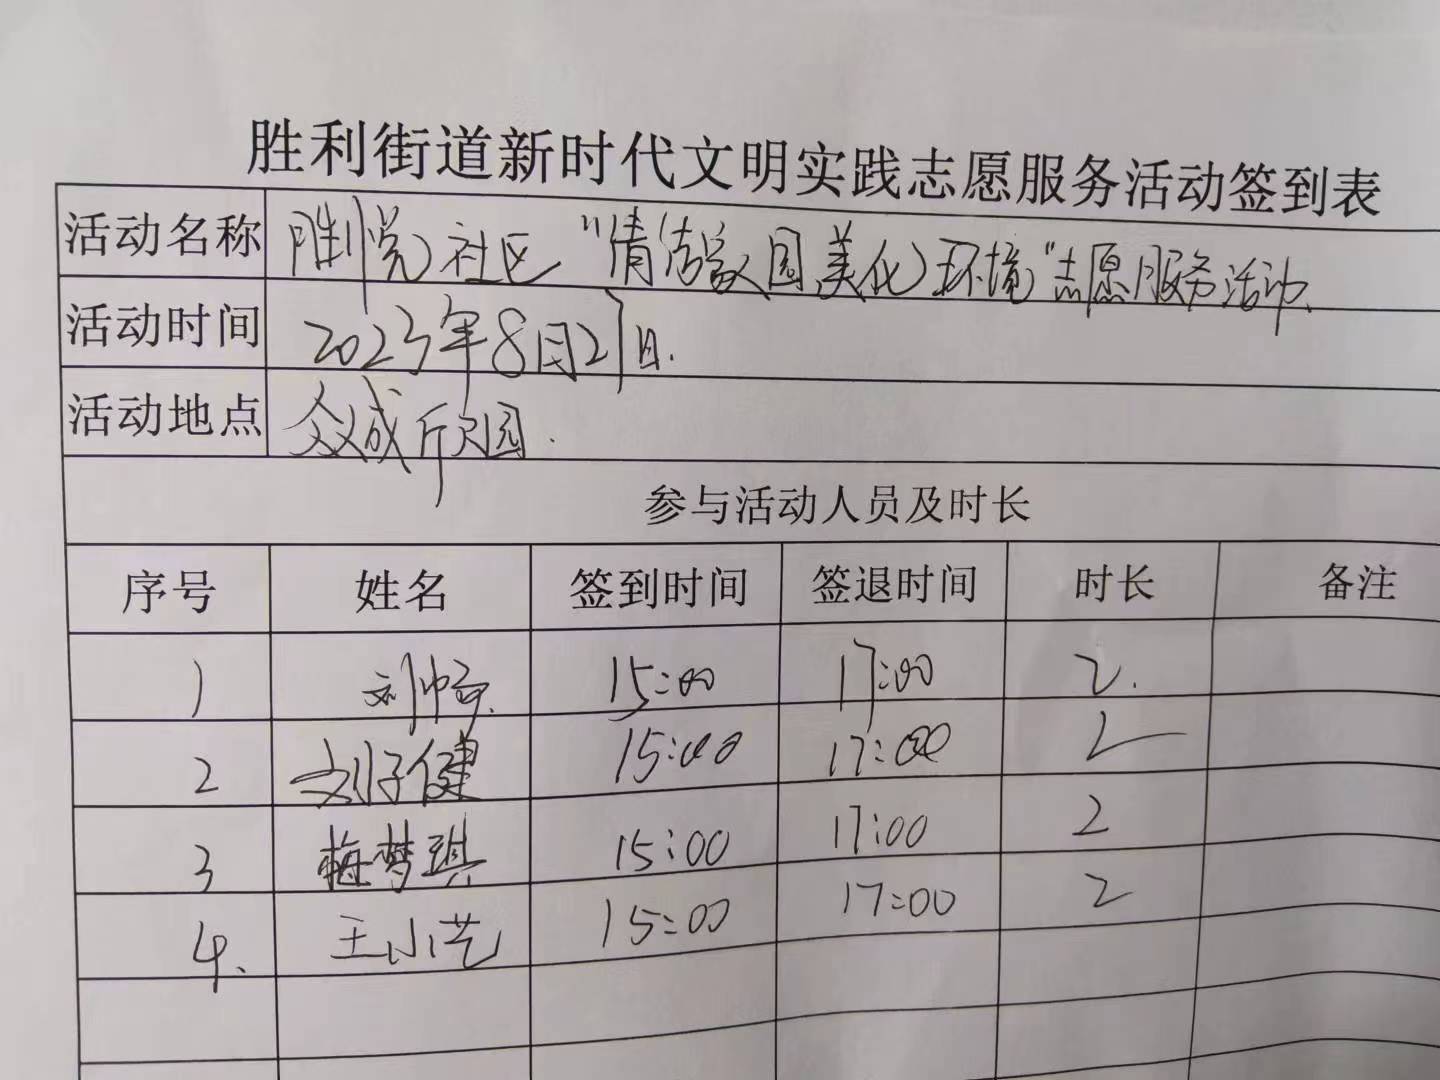 胜利街道新时代文明实践志愿服务活动签到表
活动名称 胜利社区"清洁家园美化环境"志愿服务活动.
活动时间 2023年8月21日.
活动地点 众成欣园.
参与活动人员及时长
序号 姓名 签到时间 签退时间 时长 备注
1 刘 15:00 17:00 2.
2 刘子健 15:00 17:00 2
3 梅梦琪 15:00 17:00 2
4. 王小艺 15:00 17:00 2